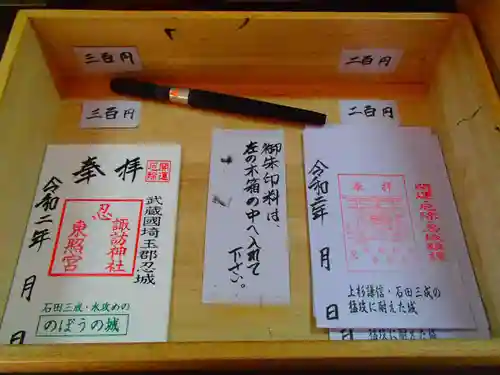 三百円
三百円
二百円
二百円
奉拝
開運
厄除
令和二年　月　日
武蔵國埼玉郡忍城
忍
諏訪神社
東照宮
石田三成・水攻めの
のぼうの城
御朱印料は、
左の木箱の中へ入れて
下さい。
令和二年　月　日
奉拝
上杉謙信・石田三成の
猛攻に耐えた城
猛攻に耐えた城